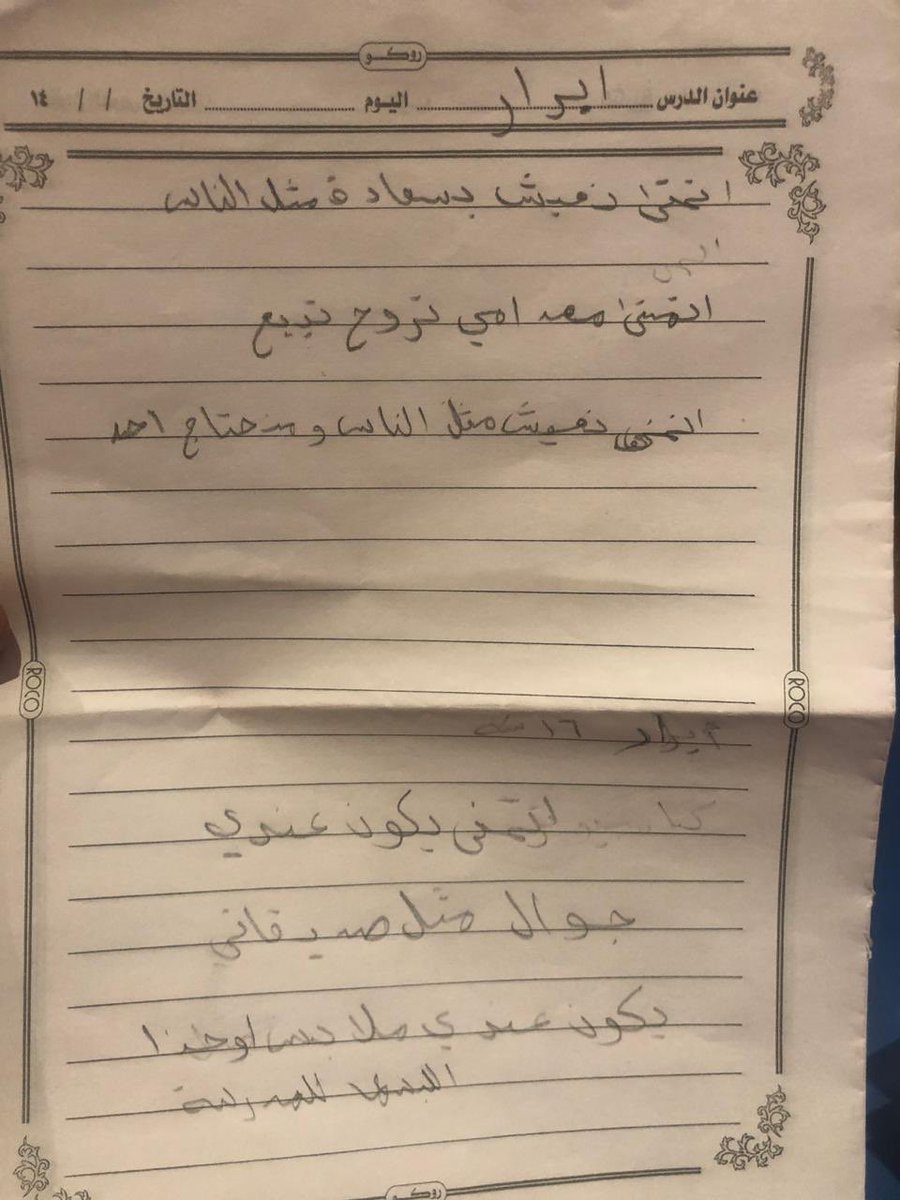 روكو
عنوان الدرس ابرار اليوم التاريخ / / ١٤
اتمتى نعيش بسعادة مثل الناس
اتمتى امي تروح تبيع
اتمنى نعيش مثل الناس و منحتاج احد
ROCO
ROCO
ابرار ١٦ سنه
اتمنى يكون عندي
جوال مثل صديقاتي
يكون عندي ملابس
البسها للمدرسة
روكو